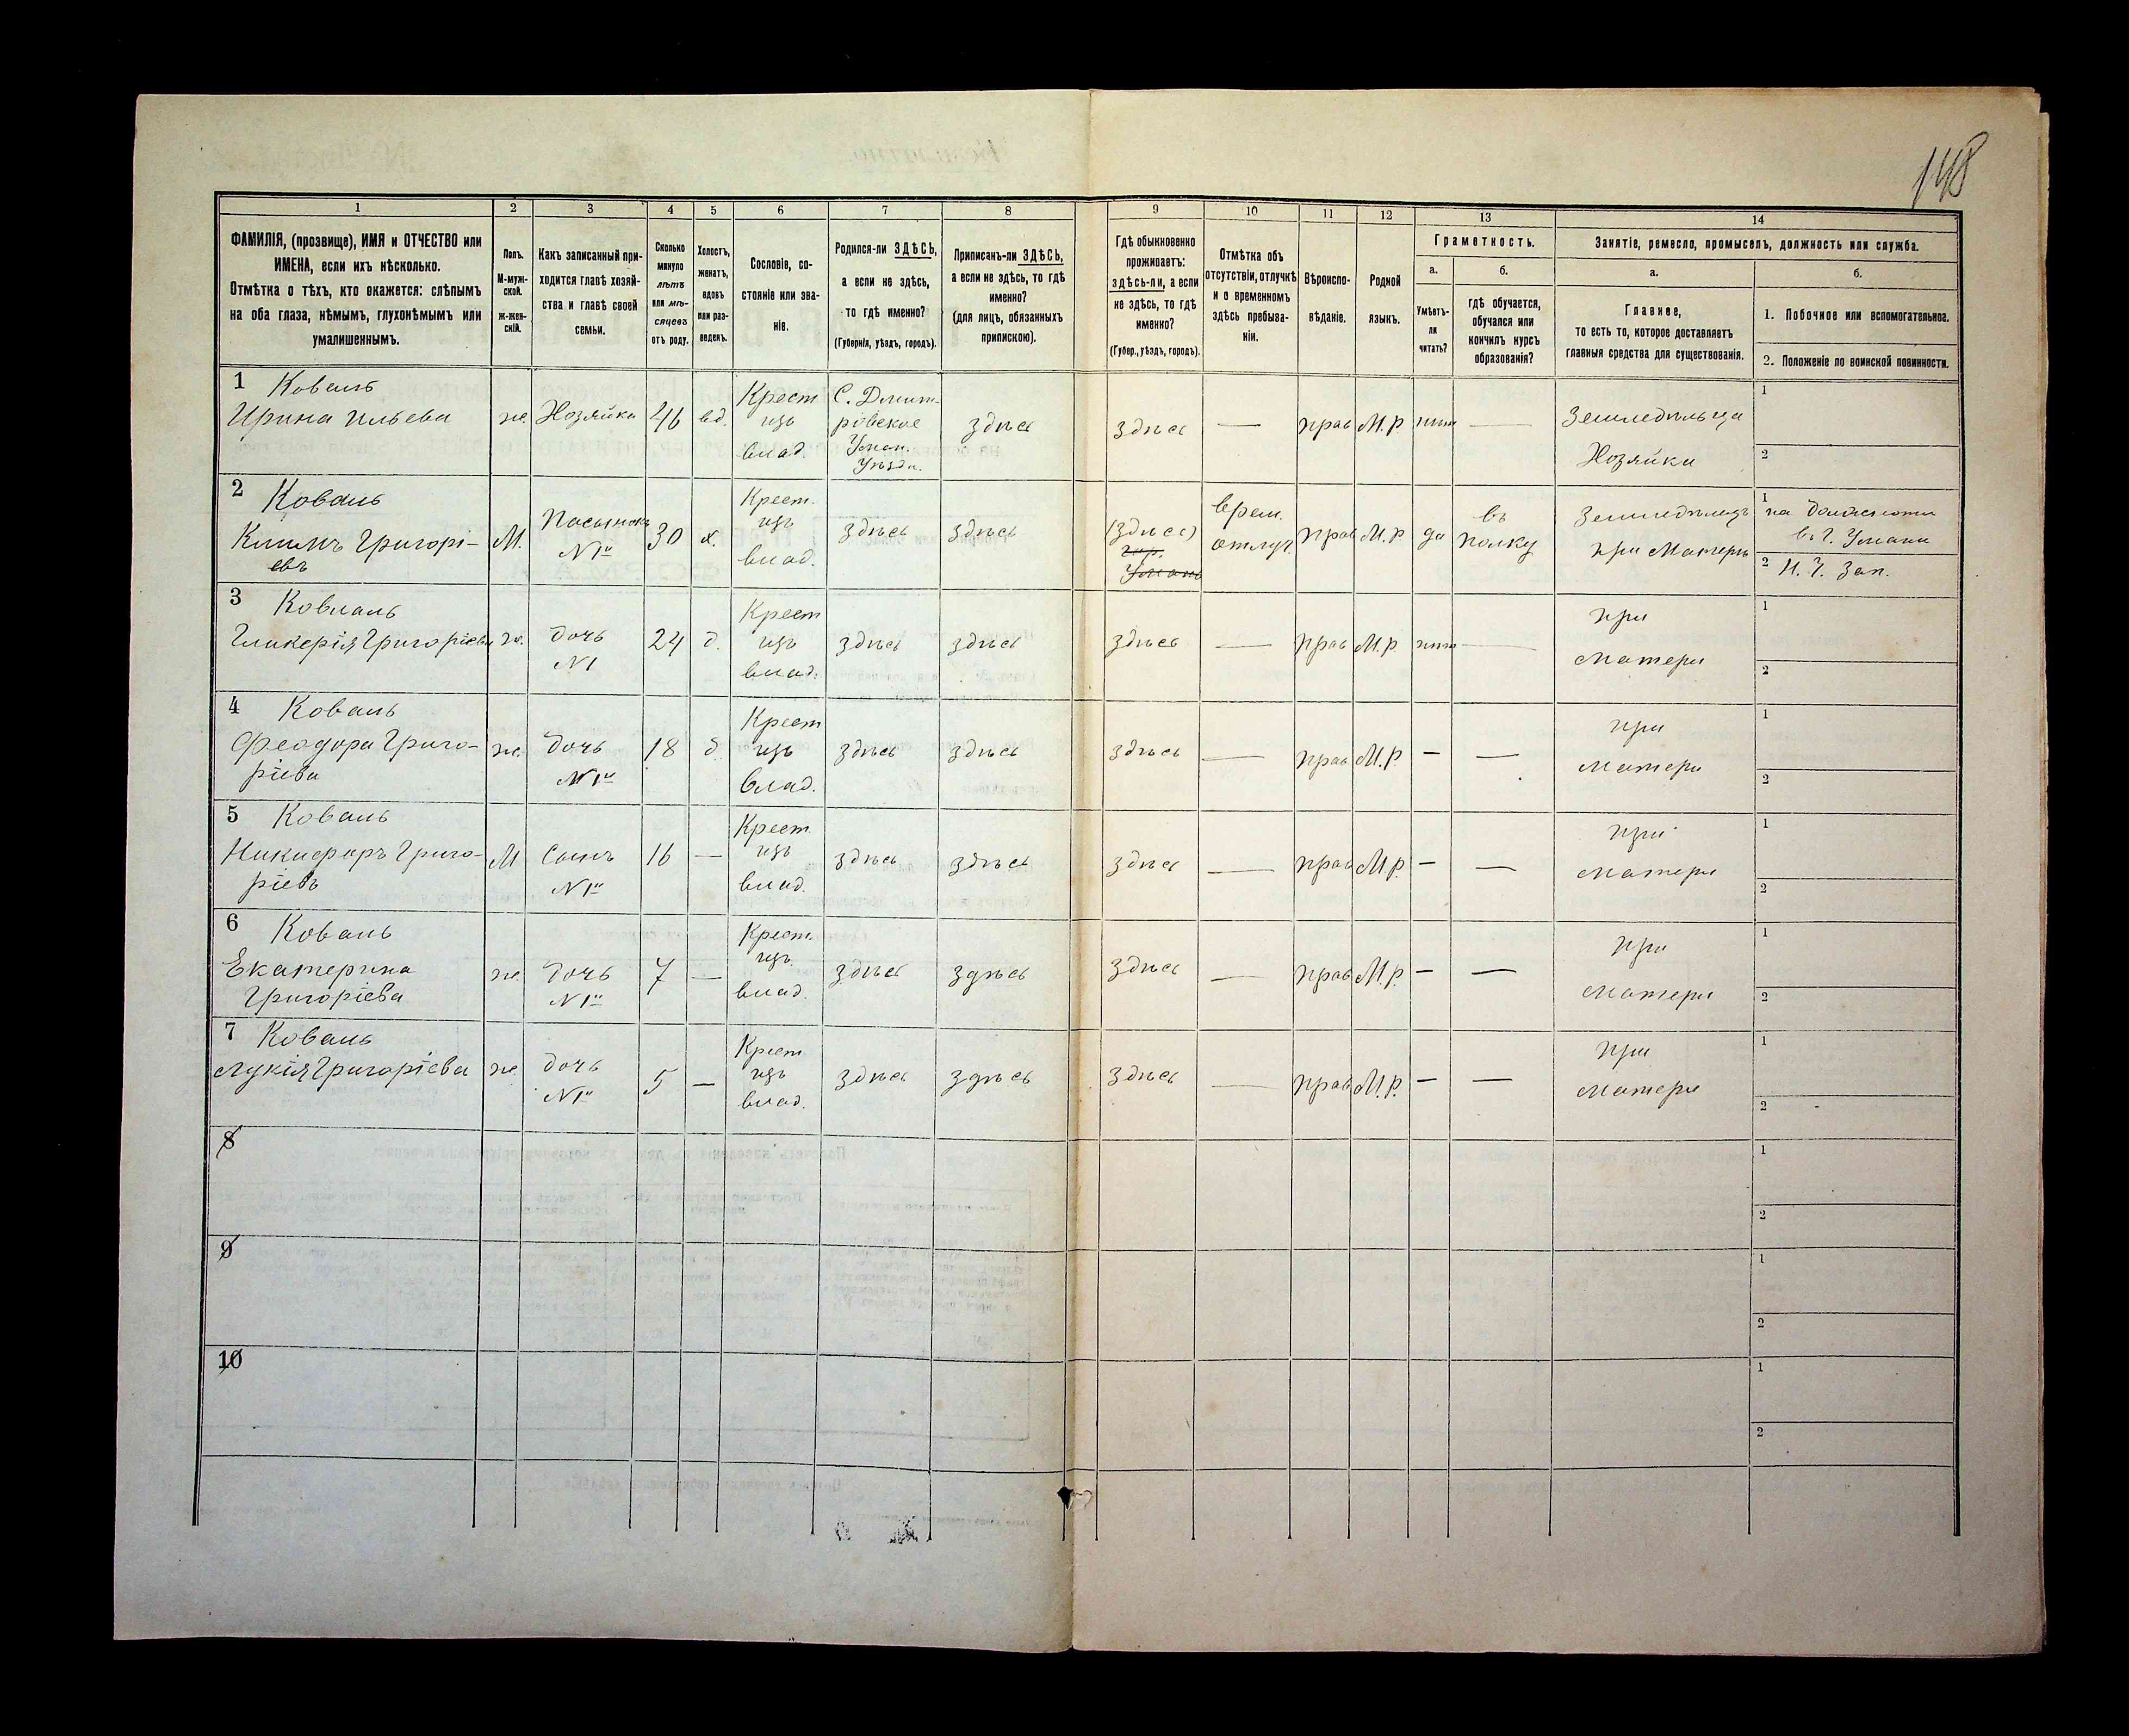 148
1
2
3
4
5
6
7
8
9
10
11
12
13
14
ФАМИЛІЯ, (прозвище), ИМЯ и ОТЧЕСТВО или
ИМЕНА, если ихъ нѣсколько.
Отмѣтка о тѣхъ, кто окажется: слѣпымъ
на оба глаза, нѣмымъ, глухонѣмымъ или
умалишеннымъ.
Полъ.
М-муж-
ской.
ж-жен-
скій.
Какъ записанный при-
ходится главѣ хозяй-
ства и главѣ своей
семьи.
Сколько
минуло
лѣтъ
или мѣ-
сяцевъ
отъ роду.
Холостъ,
женатъ,
вдовъ
или раз-
веденъ.
Сословіе, со-
стояніе или зва-
ніе.
Родился-ли ЗДѢСЬ,
а если не здѣсь,
то гдѣ именно?
(Губернія, уѣздъ, городъ).
Приписанъ-ли ЗДѢСЬ,
а если не здѣсь, то гдѣ
именно?
(для лицъ, обязанныхъ
припискою).
Гдѣ обыкновенно
проживаетъ:
здѣсь-ли, а если
не здѣсь, то гдѣ
именно?
(Губер., уѣздъ, городъ).
Отмѣтка объ
отсутствіи, отлучкѣ
и о временномъ
здѣсь пребыва-
ніи.
Вѣроиспо-
вѣданіе.
Родной
языкъ.
Грамотность.
а.
Умѣетъ-
ли
читать?
б.
гдѣ обучается,
обучался или
кончилъ курсъ
образованія?
Занятіе, ремесло, промыселъ, должность или служба.
а.
Главное,
то есть то, которое доставляетъ
главныя средства для существованія.
б.
1. Побочное или вспомогательное.
2. Положеніе по воинской повинности.
1 Коваль
Ирина Ильева
ж.
Хозяйка
46
вд.
Крест
изъ
влад.
С. Дмит-
ровское
Уман.
Уѣзда.
здѣсь
здѣсь
—
прав
М.р
нѣт
—
Земледѣльца
Хозяйка
1
2
2 Коваль
Климъ Григорі-
евъ
М.
Пасынокъ
№1й
30
х.
Крест.
изъ
влад.
здѣсь
здѣсь
(здѣсь)
гор.
Умань
врем.
отлуч.
прав
М.р
да
въ
полку
Земледѣлецъ
при Матери
1 на должности
в г. Умани
2 Н. Ч. Зап.
3 Коваль
Гликерія Григоріева
ж.
дочь
№1
24
д.
Крест
изъ
влад.
здѣсь
здѣсь
здѣсь
—
прав
М.р.
нѣт
—
при
матери
1
2
4 Коваль
Феодора Григо-
ріева
ж.
дочь
№1й
18
д
Крест
изъ
влад.
здѣсь
здѣсь
здѣсь
—
прав
М.р
—
—
при
матери
1
2
5 Коваль
Никифоръ Григо-
ріевъ
М
Сынъ
№1й
16
—
Крест.
изъ
влад.
здѣсь
здѣсь
здѣсь
—
прав
М.р.
—
—
при
матери
1
2
6 Коваль
Екатерина
Григоріева
ж.
дочь
№1й
7
—
Крест.
изъ
влад.
здѣсь
здѣсь
здѣсь
—
прав
М.р.
—
—
при
матери
1
2
7 Коваль
Лукія Григоріева
ж
дочь
№1й
5
—
Крест
изъ
влад.
здѣсь
здѣсь
здѣсь
—
прав
М.р.
—
—
при
матери
1
2
8
1
2
9
1
2
10
1
2